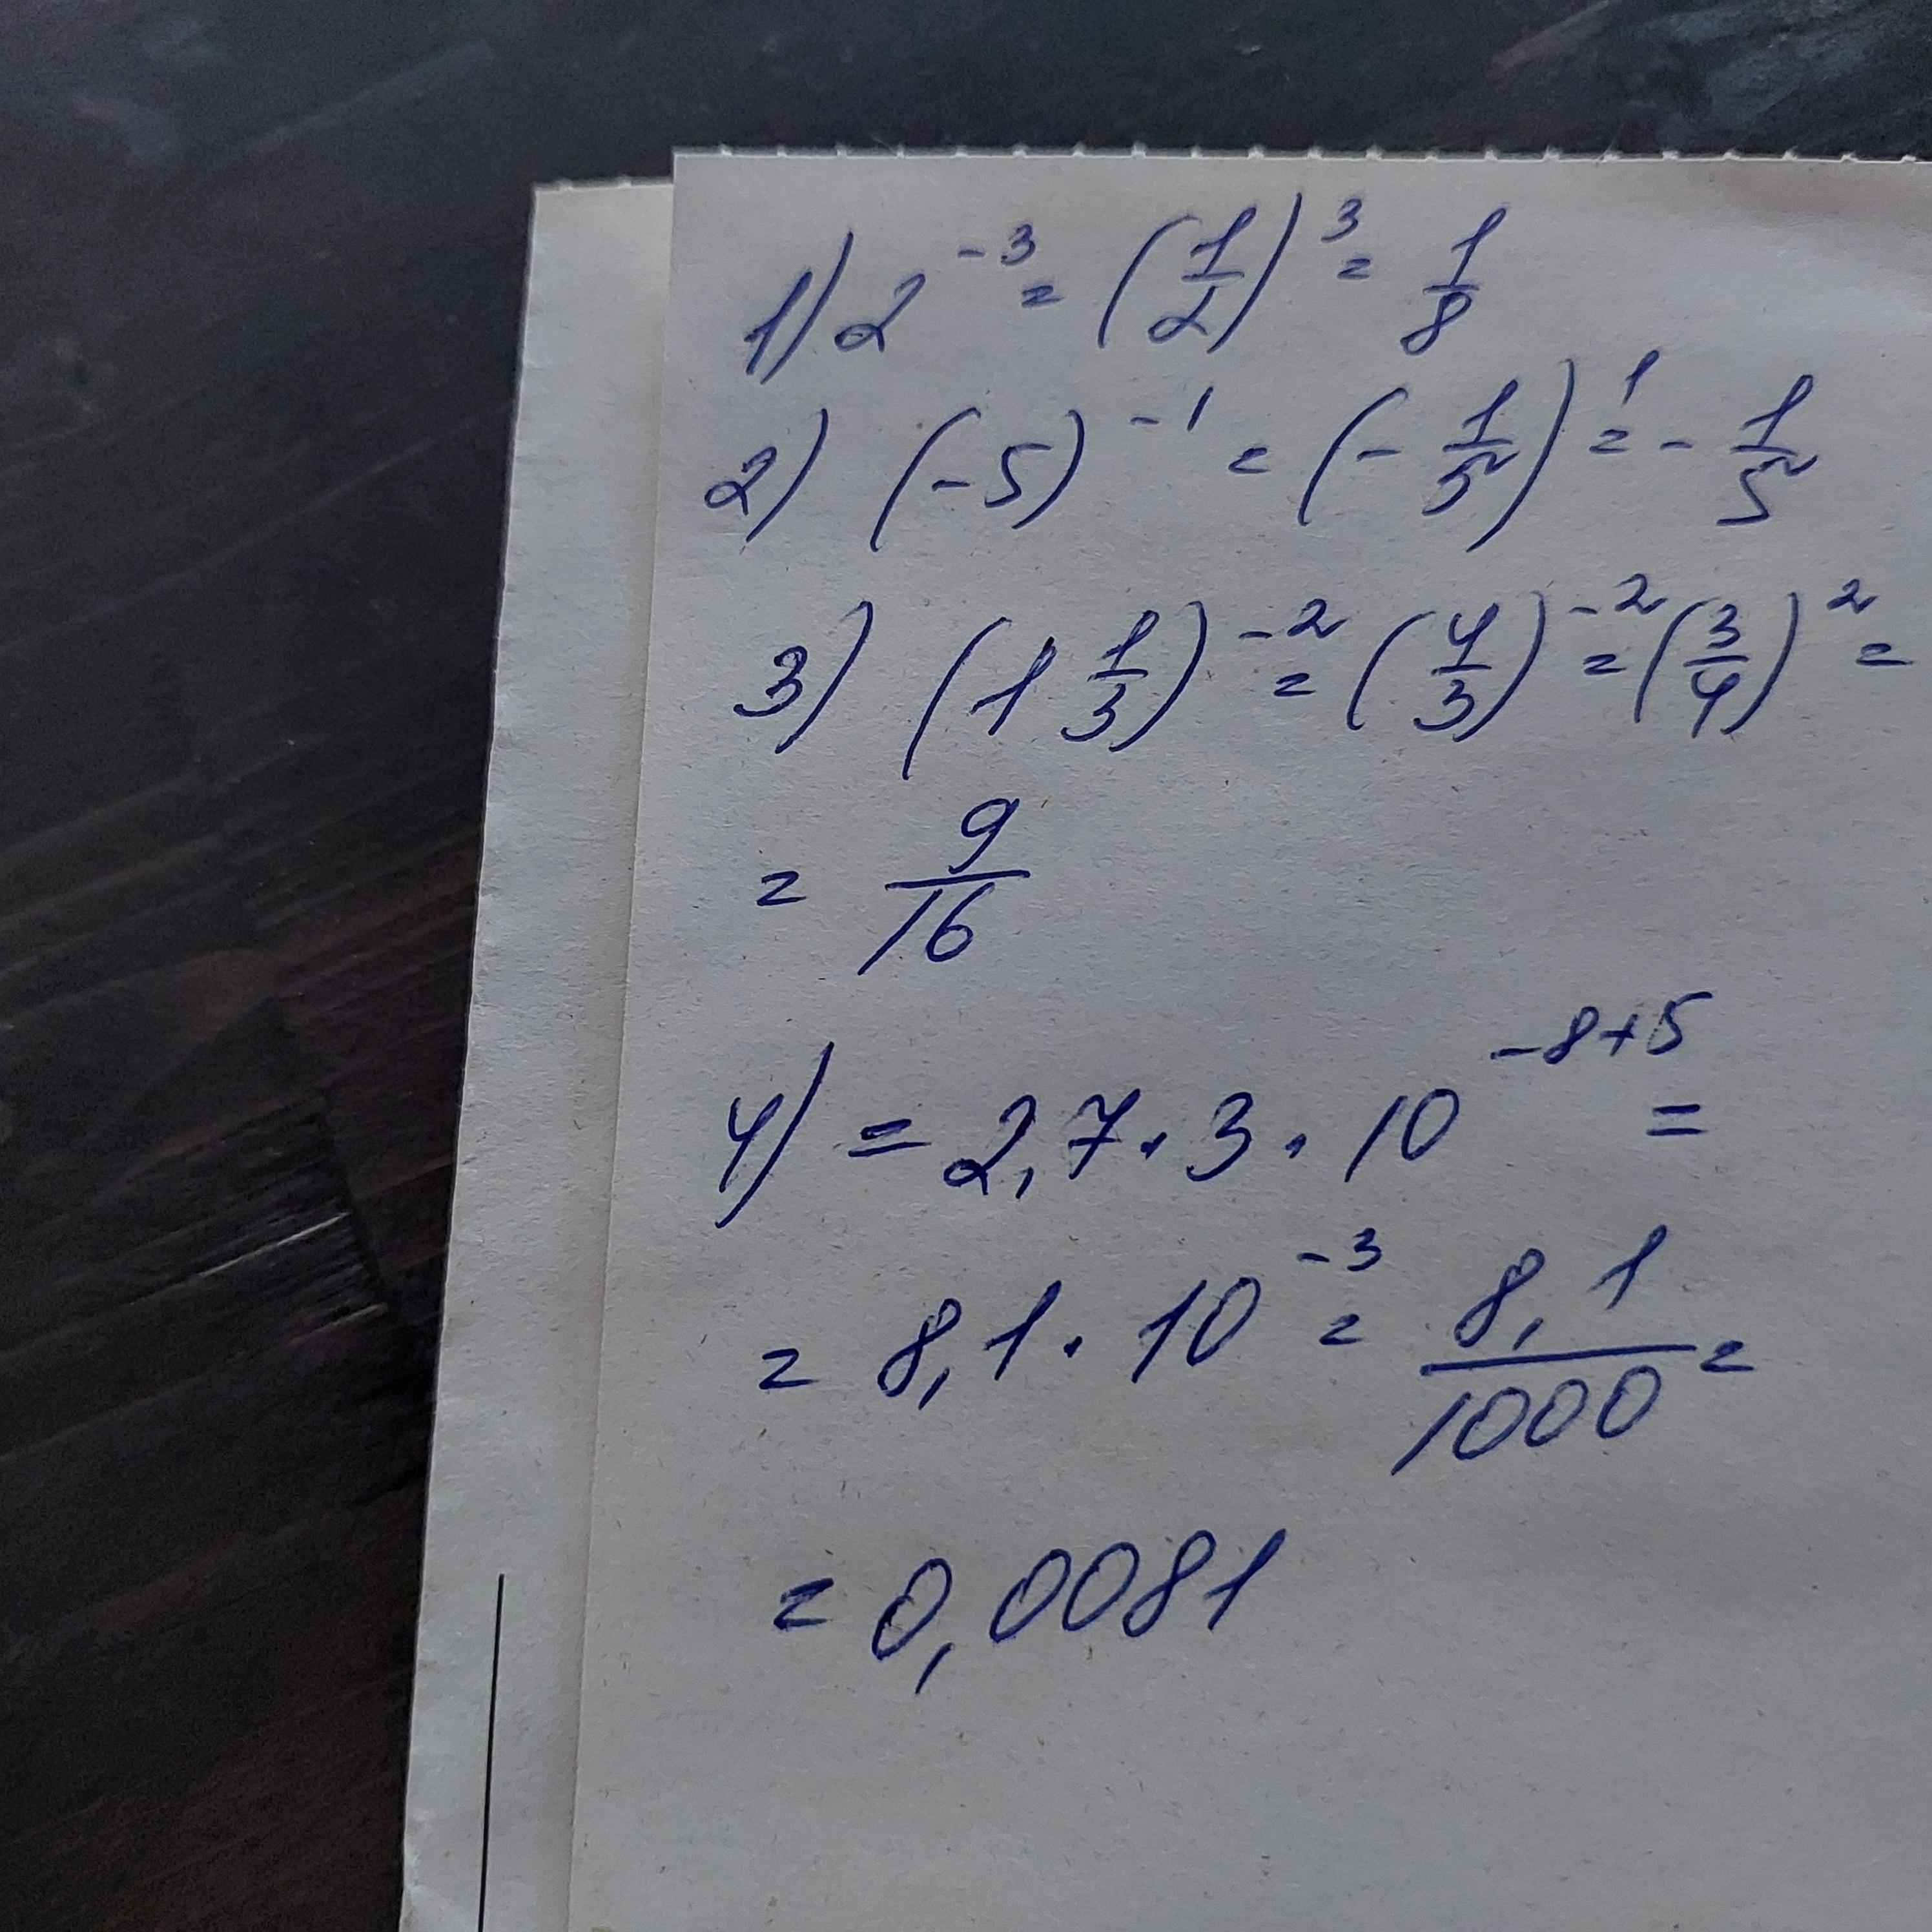 1) 2^-3 = (1/2)^3 = 1/8
2) (-5)^-1 = (-1/5)^1 = -1/5
3) (1 1/3)^-2 = (4/3)^-2 = (3/4)^2 =
= 9/16
4) = 2,7 · 3 · 10^-8+5 =
= 8,1 · 10^-3 = 8,1/1000 =
= 0,0081